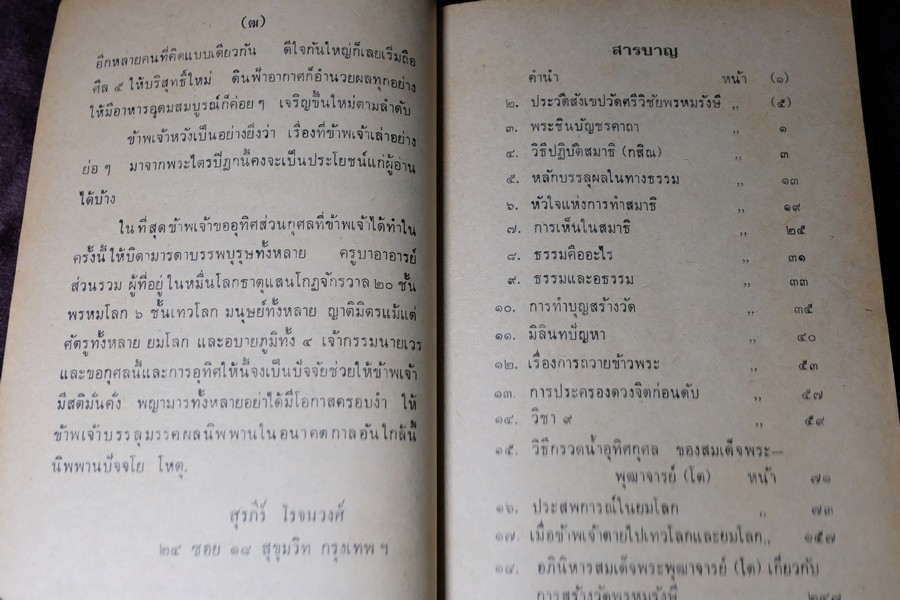 (๗)
อีกหลายคนที่คิดแบบเดียวกัน ดีใจกันใหญ่ก็เลยเริ่มถือ
ศีล ๕ ให้บริสุทธิ์ใหม่ ดินฟ้าอากาศก็อำนวยผลทุกอย่าง
ให้มีอาหารอุดมสมบูรณ์ก็ค่อย ๆ เจริญขึ้นใหม่ตามลำดับ
ข้าพเจ้าหวังเป็นอย่างยิ่งว่า เรื่องที่ข้าพเจ้าเล่าอย่าง
ย่อ ๆ มาจากพระไตรปิฎกนี้คงจะเป็นประโยชน์แก่ผู้อ่าน
ได้บ้าง
ในที่สุดข้าพเจ้าขออุทิศส่วนกุศลที่ข้าพเจ้าได้ทำใน
ครั้งนี้ให้บิดามารดาบรรพบุรุษทั้งหลาย ครูบาอาจารย์
ส่วนรวม ผู้ที่อยู่ในหมื่นโลกธาตุแสนโกฏจักรวาล ๒๐ ชั้น
พรหมโลก ๖ ชั้นเทวโลก มนุษย์ทั้งหลาย ญาติมิตรแม้แต่
ศัตรูทั้งหลาย ยมโลก และอบายภูมิทั้ง ๔ เจ้ากรรมนายเวร
และขอกุศลนี้และการอุทิศให้นี้จงเป็นปัจจัยช่วยให้ข้าพเจ้า
มีสติมั่นคง พญามารทั้งหลายอย่าได้มีโอกาสครอบงำ ให้
ข้าพเจ้าบรรลุมรรคผลนิพพานในอนาคตกาลอันใกล้นี้
นิพพานปัจจโย โหตุ.
สุรภีร์ โรจนวงศ์
๒๔ ซอย ๑๘ สุขุมวิท กรุงเทพ ฯ
สารบาญ
คำนำ หน้า (๑)
๒. ประวัติสังเขปวัดศรีวิชัยพรหมรังษี ,, (๕)
๓. พระชินบัญชรคาถา ,, ๑
๔. วิธีปฏิบัติสมาธิ (กสิณ) ,, ๓
๕. หลักบรรลุผลในทางธรรม ,, ๑๓
๖. หัวใจแห่งการทำสมาธิ ,, ๑๙
๗. การเห็นในสมาธิ ,, ๒๕
๘. ธรรมคืออะไร ,, ๓๑
๙. ธรรมและอธรรม ,, ๓๓
๑๐. การทำบุญสร้างวัด ,, ๓๕
๑๑. มิลินทปัญหา ,, ๔๐
๑๒. เรื่องการถวายข้าวพระ ,, ๕๓
๑๓. การประครองดวงจิตก่อนดับ ,, ๕๗
๑๔. วิชา ๙ ,, ๕๙
๑๕. วิธีกรวดน้ำอุทิศกุศล ของสมเด็จพระ—
พุฒาจารย์ (โต) หน้า ๗๑
๑๖. ประสพการณ์ในยมโลก ,, ๗๓
๑๗. เมื่อข้าพเจ้าตายไปเทวโลกและยมโลก,, ๑๕๗
๑๘. อภินิหารสมเด็จพระพุฒาจารย์ (โต) เกี่ยวกับ
การสร้างวัดพรหมรังษี